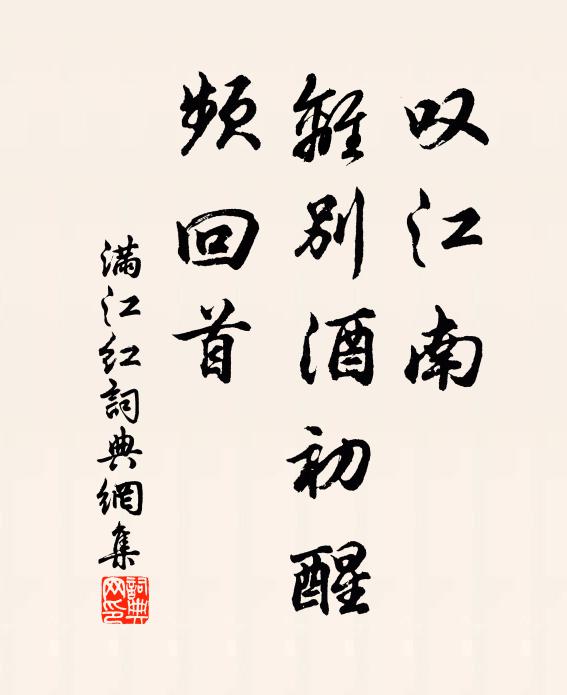 叹江南
離别酒初醒
频回首
满江红詞典網集
詞典
网印